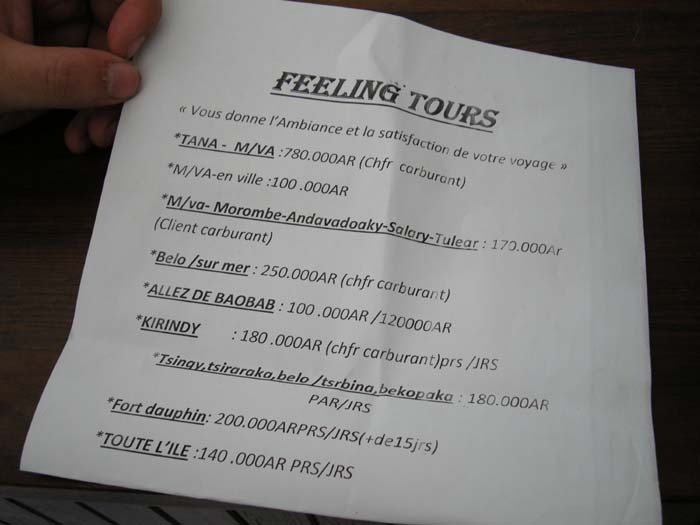 FEELING TOURS
« Vous donne l'Ambiance et la satisfaction de votre voyage »
*TANA - M/VA :780.000AR (Chfr carburant)
*M/VA-en ville :100 .000AR
*M/va- Morombe-Andavadoaky-Salary-Tulear : 170.000Ar
(Client carburant)
*Belo /sur mer : 250.000AR (chfr carburant)
*ALLEZ DE BAOBAB : 100 .000AR /120000AR
*KIRINDY : 180 .000AR (chfr carburant)prs /JRS
*Tsingy,tsiraraka,belo /tsrbina,bekopaka : 180.000AR
PAR/JRS
*Fort dauphin: 200.000ARPRS/JRS(+de15jrs)
*TOUTE L'ILE :140 .000AR PRS/JRS